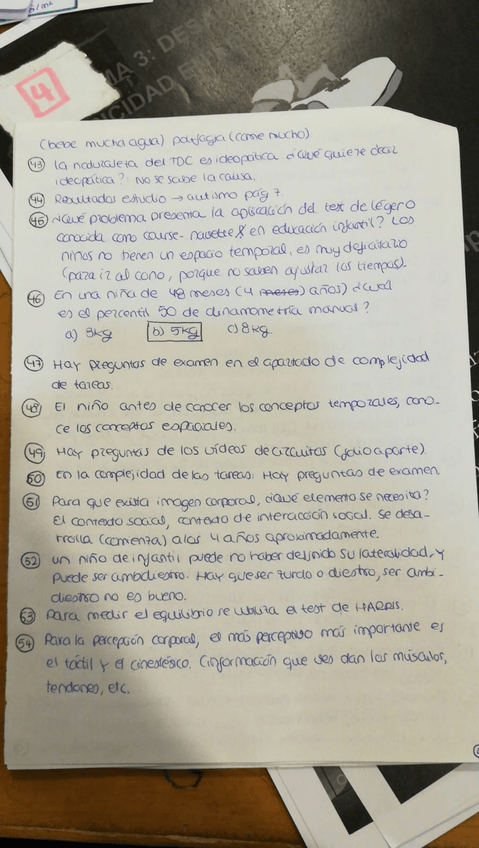 4
MA 3: DES
CIDAD E
(bebe mucha agua) polifagia (come mucho)
43 La naturaleza del TDC es ideopática ¿Qué quiere decir
ideopática?: No se sabe la causa.
44 Resultados estudio → autismo pág 7.
45 ¿Qué problema presenta la aplicación del test de légero
conocida como course-navette en educación infantil? Los
niños no tienen un espacio temporal, es muy deficitario
(para ir al cono, porque no saben ajustar los tiempos).
46 En una niña de 48 meses (4 meses) años) ¿cuál
es el percentil 50 de dinamometría manual?
a) 3kg b) 5kg c) 8kg.
47 Hay preguntas de examen en el apartado de complejidad
de tareas.
48 El niño antes de conocer los conceptos temporales, cono-
ce los conceptos espaciales.
49 Hay preguntas de los vídeos de circuitos (folio aparte)
50 En la complejidad de las tareas: Hay preguntas de examen
51 Para que exista imagen corporal, ¿Qué elemento se necesita?
El contexto social, contexto de interacción social. Se desa-
rrolla (comienza) a los 4 años aproximadamente.
52 Un niño de infantil puede no haber definido su lateralidad, y
puede ser ambidiestro. Hay que ser zurdo o diestro, ser ambi-
diestro no es bueno.
53 Para medir el equilibrio se utiliza el test de HARRIS.
54 Para la percepción corporal, el más perceptivo más importante es
el táctil y el cinestésico. (información que nos dan los músculos,
tendones, etc.